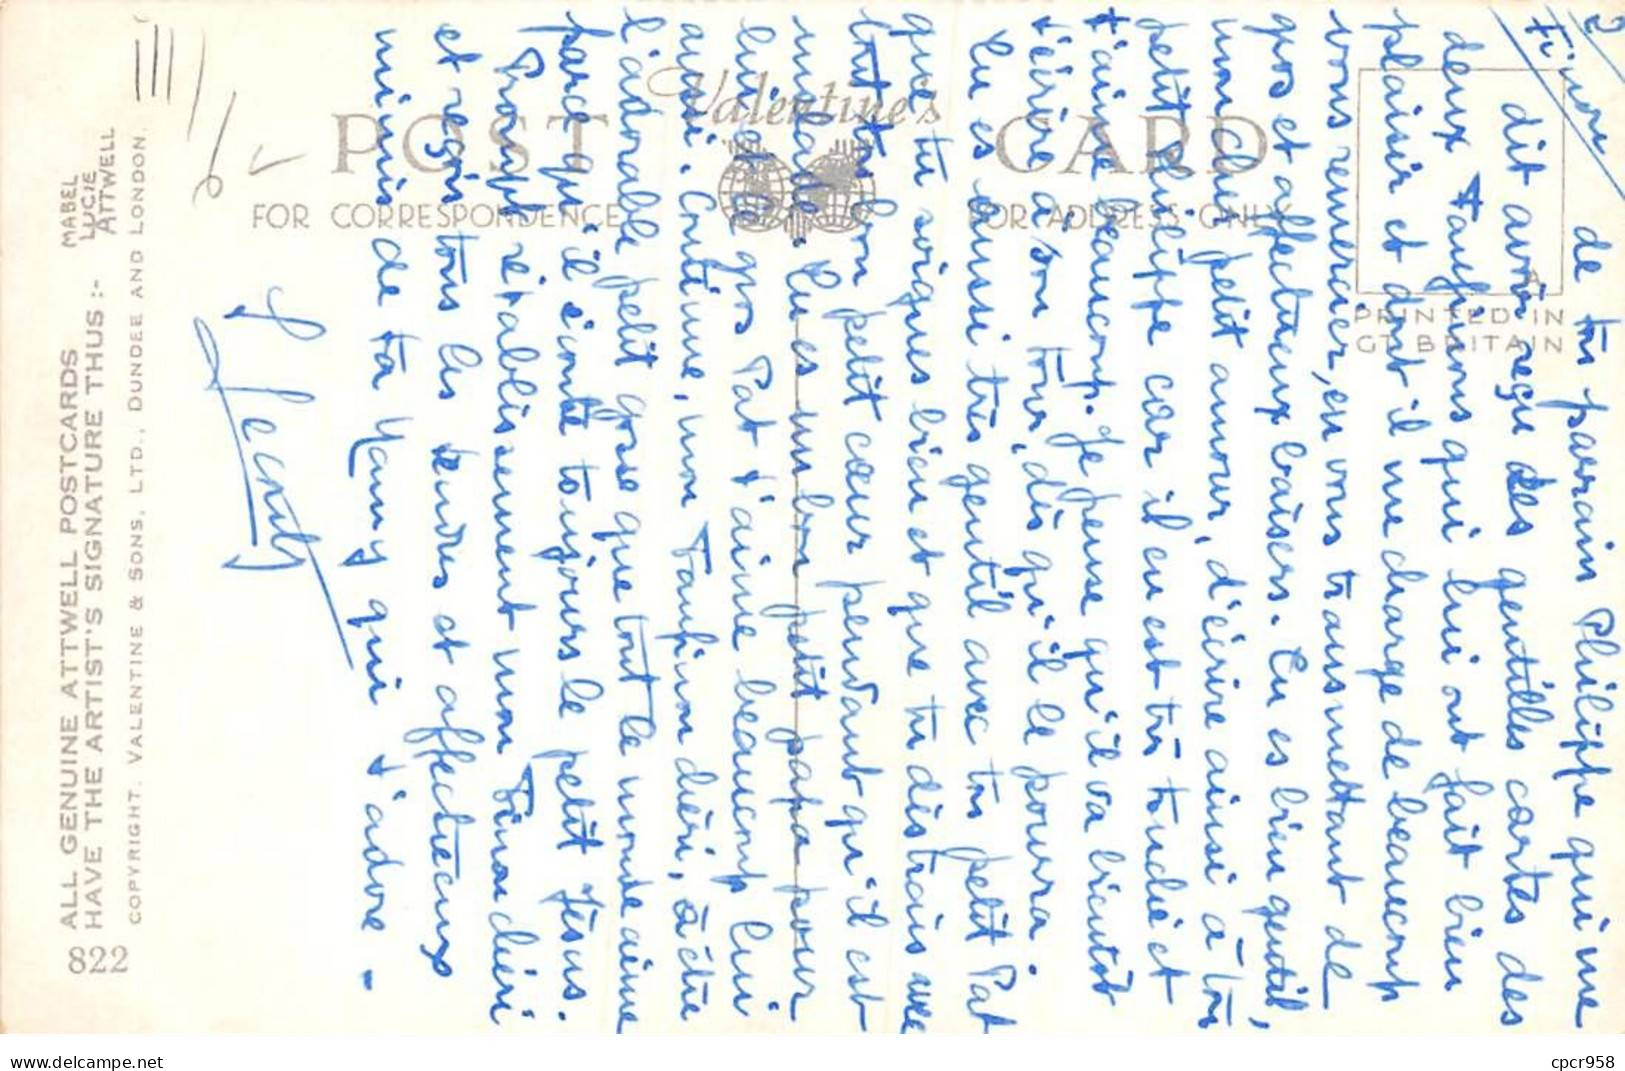 2
Finon
de ton parrain Philippe qui me
dit avoir reçu des gentilles cartes des
deux Fanfinons qui lui ont fait bien
plaisir et dont il me charge de beaucoup
vous remercier, en vous transmettant de
gros et affectueux baisers. Tu es bien gentil,
mon cher petit amour, d'écrire ainsi à ton
petit Philippe car il en est très touché et
t'aime beaucoup. Je pense qu'il va bientôt
t'écrire à son tour, dès qu'il le pourra
Tu es aussi très gentil avec ton petit Pat
que tu soignes bien et que tu distrais avec
tout ton bon petit cœur pendant qu'il est
malade. Tu es un bon petit papa pour
lui et le gros Pat t'aime beaucoup lui
aussi. Continue, mon Fanfinon chéri, à être
l'adorable petit gosse que tout le monde aime
parce qu'il écoute toujours le petit Jésus.
Prompt rétablissement mon Finon chéri
et reçois tous les tendres et affectueux
mimis de ta Mamy qui t'adore -
POST CARD
Valentine's
FOR CORRESPONDENCE
FOR ADDRESS ONLY
A
PRINTED IN
GT BRITAIN
822
ALL GENUINE ATTWELL POSTCARDS
HAVE THE ARTIST'S SIGNATURE THUS :-
MABEL
LUCIE
ATTWELL
COPYRIGHT. VALENTINE & SONS, LTD., DUNDEE AND LONDON.
cpcr958